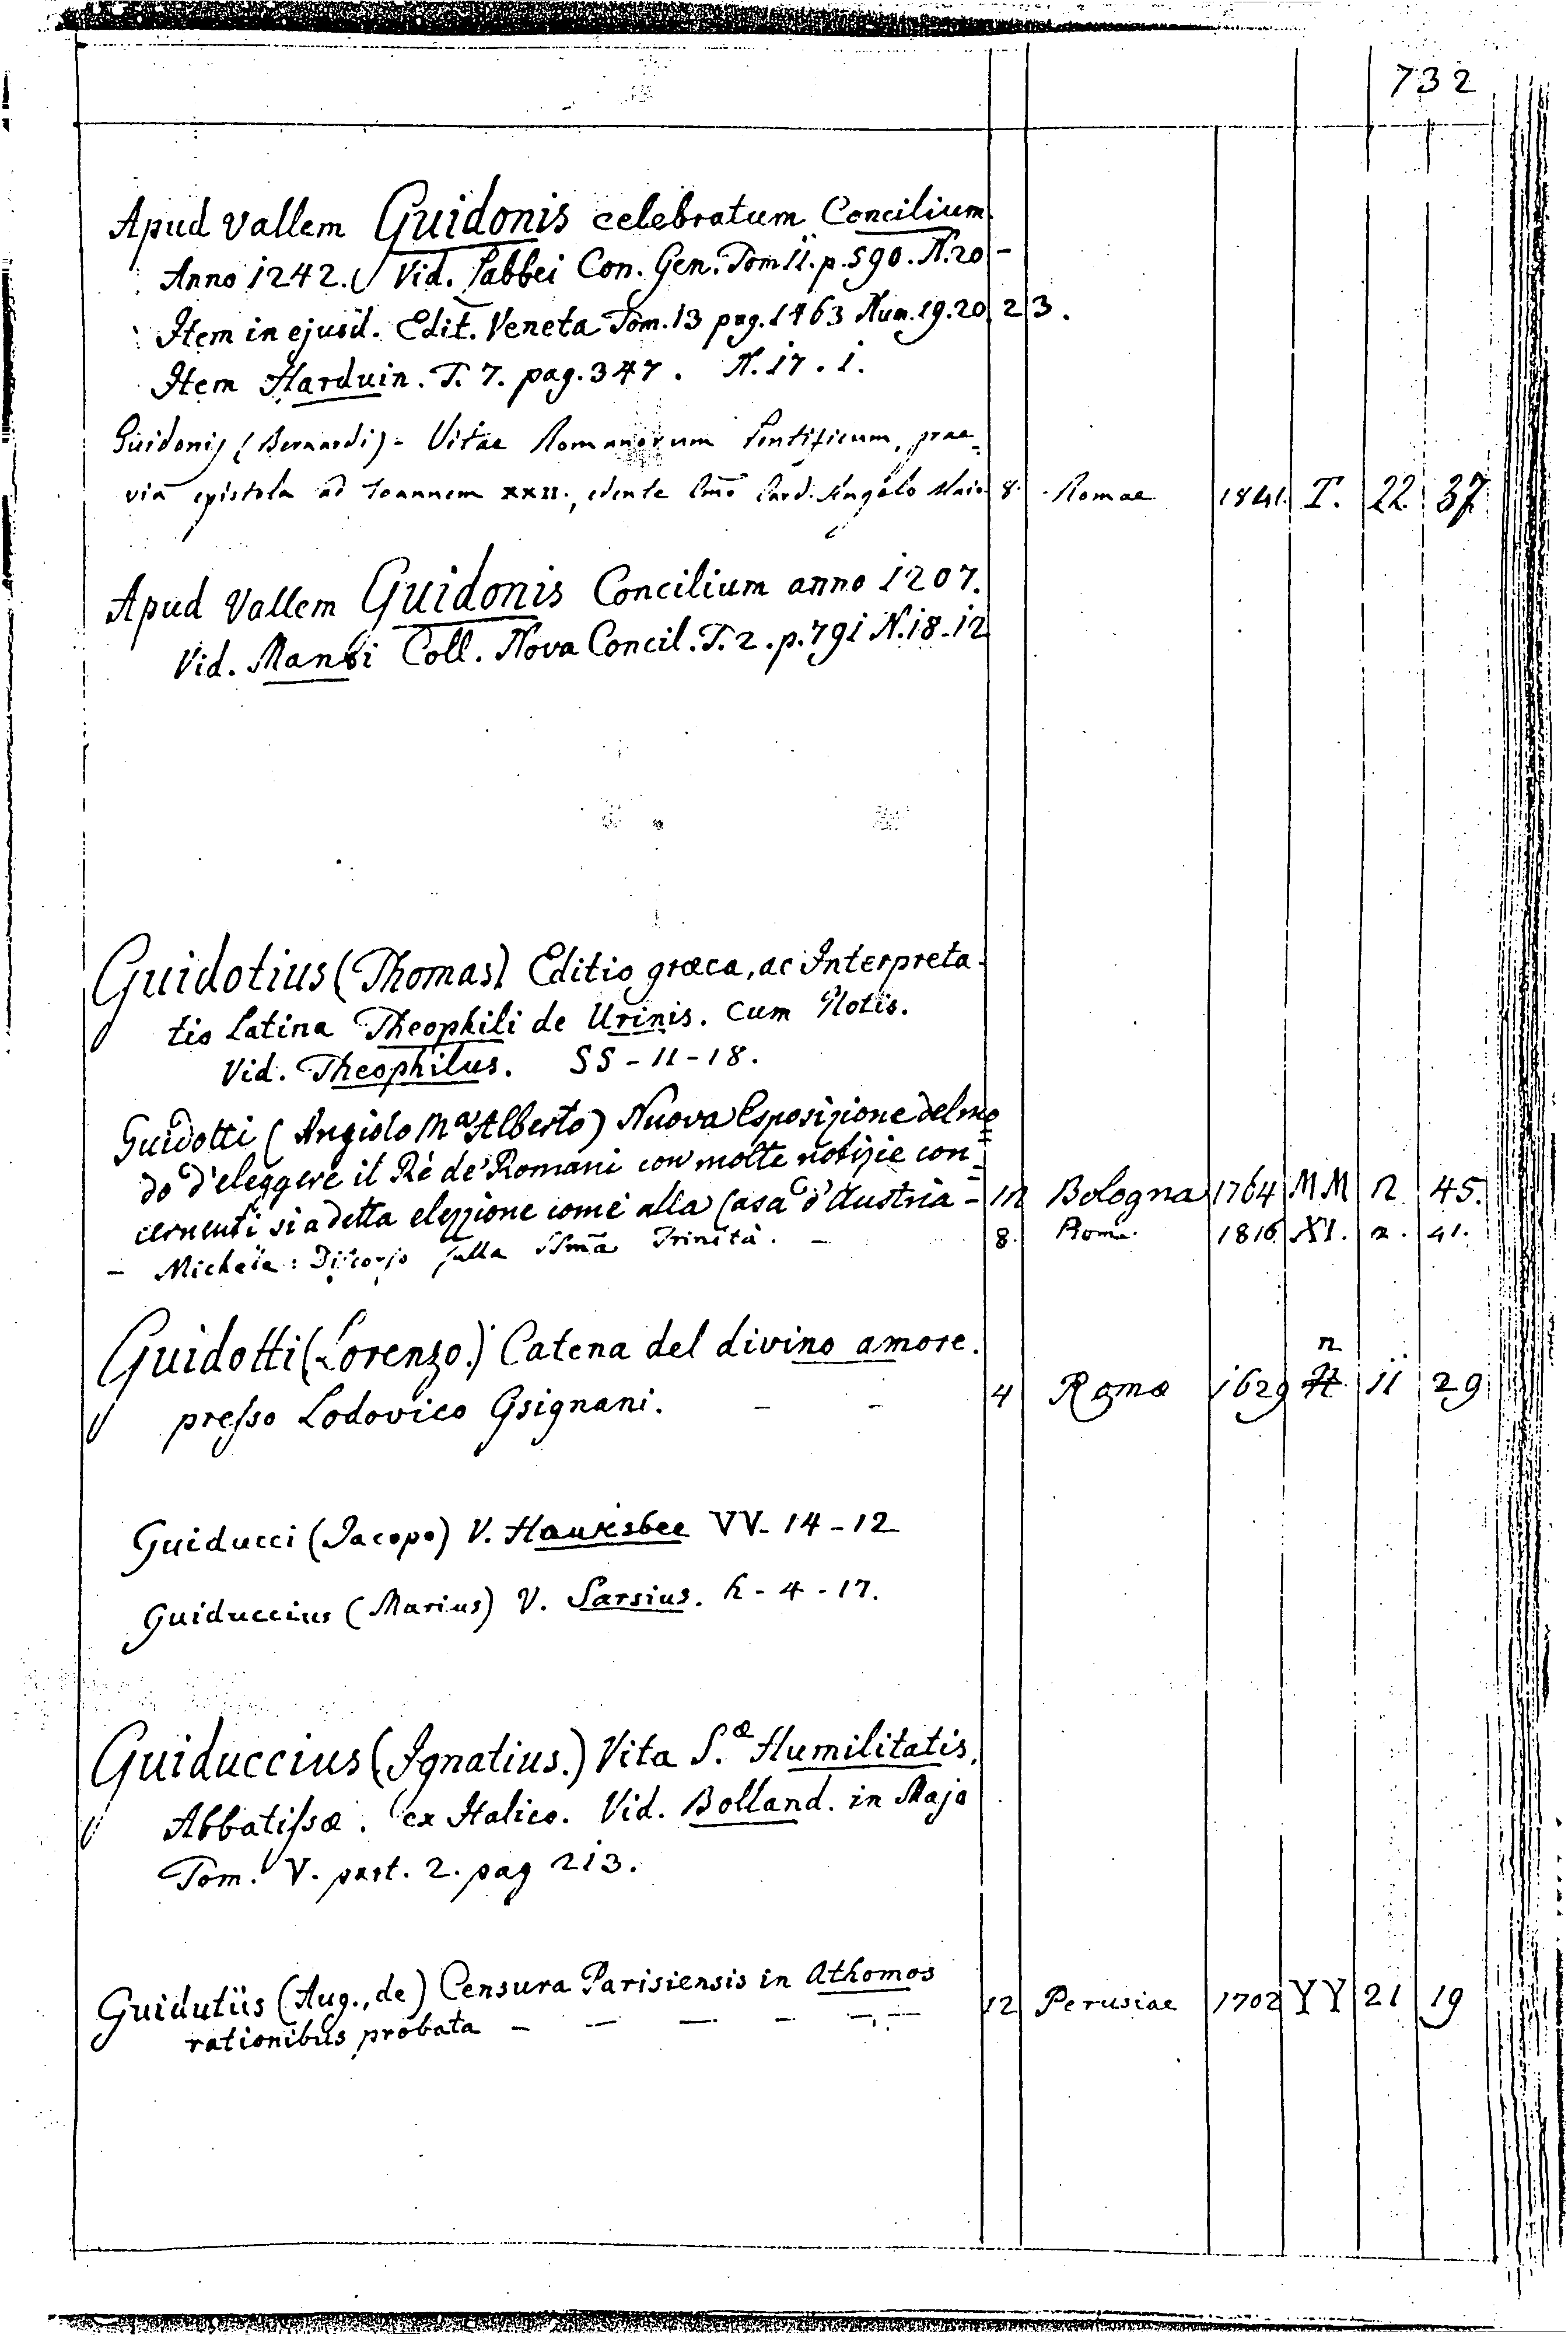 732
Apud Vallem Guidonis celebratum Concilium
Anno 1242. Vid. Labbei Con. Gen. Tom 11. p. 590. N. 20 -
Item in ejusd. Edit. Veneta Tom. 13 pag. 1463 Num. 19. 20 23.
Item Harduin. T. 7. pag. 347. N. 17. 1.
Guidonis (Bernardi) - Vitae Romanorum Pontificum, prae=
via epistola ad Joannem XXII., edente Emo Card. Angelo Maio 8. Romae 1841. T. 22 37
Apud Vallem Guidonis Concilium anno 1207.
Vid. Mansi Coll. Nova Concil. T. 2. p. 791 N. 18-12
Guidotius (Thomas) Editio græca, ac Interpreta-
tio Latina Theophili de Urinis. Cum Notis.
Vid. Theophilus. SS - 11 - 18.
Guidotti (Angiolo Mª Alberto) Nuova Esposizione del mo=
do d'eleggere il Rè de' Romani con molte notizie con=
cernenti sì a detta elezzione come alla Casa d'Austria - 12 Bologna 1764 MM n 45.
- Michele: Discorso sulla SSma Trinità. - 8. Roma. 1816 XI. 2. 41.
Guidotti (Lorenzo.) Catena del divino amore.
presso Lodovico Gsignani. - - 4 Roma 1629 n H 11 29
Guiducci (Jacopo) V. Hauksbee VV - 14 - 12
Guiduccius (Marius) V. Sarsius. h - 4 - 17.
Guiduccius (Ignatius.) Vita S.æ Humilitatis,
Abbatissæ. ex Italico. Vid. Bolland. in Majo
Tom. V. part. 2. pag 213.
Guidutiis (Aug., de) Censura Parisiensis in Athomos
rationibus probata - - - - - 12 Perusiae 1702 YY 21 19